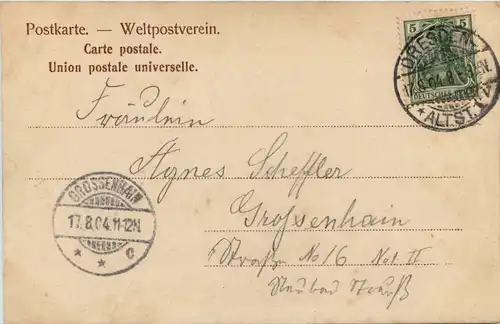 Postkarte. — Weltpostverein.
Carte postale.
Union postale universelle.
5 5
DEUTSCHES REICH
DRESDEN
17.8.04.
* ALTST.
Fräulein
Agnes Scheffler
Großenhain
Straße No 16 No II
GROSSENHAIN
17.8.04.11-12N.
* * c